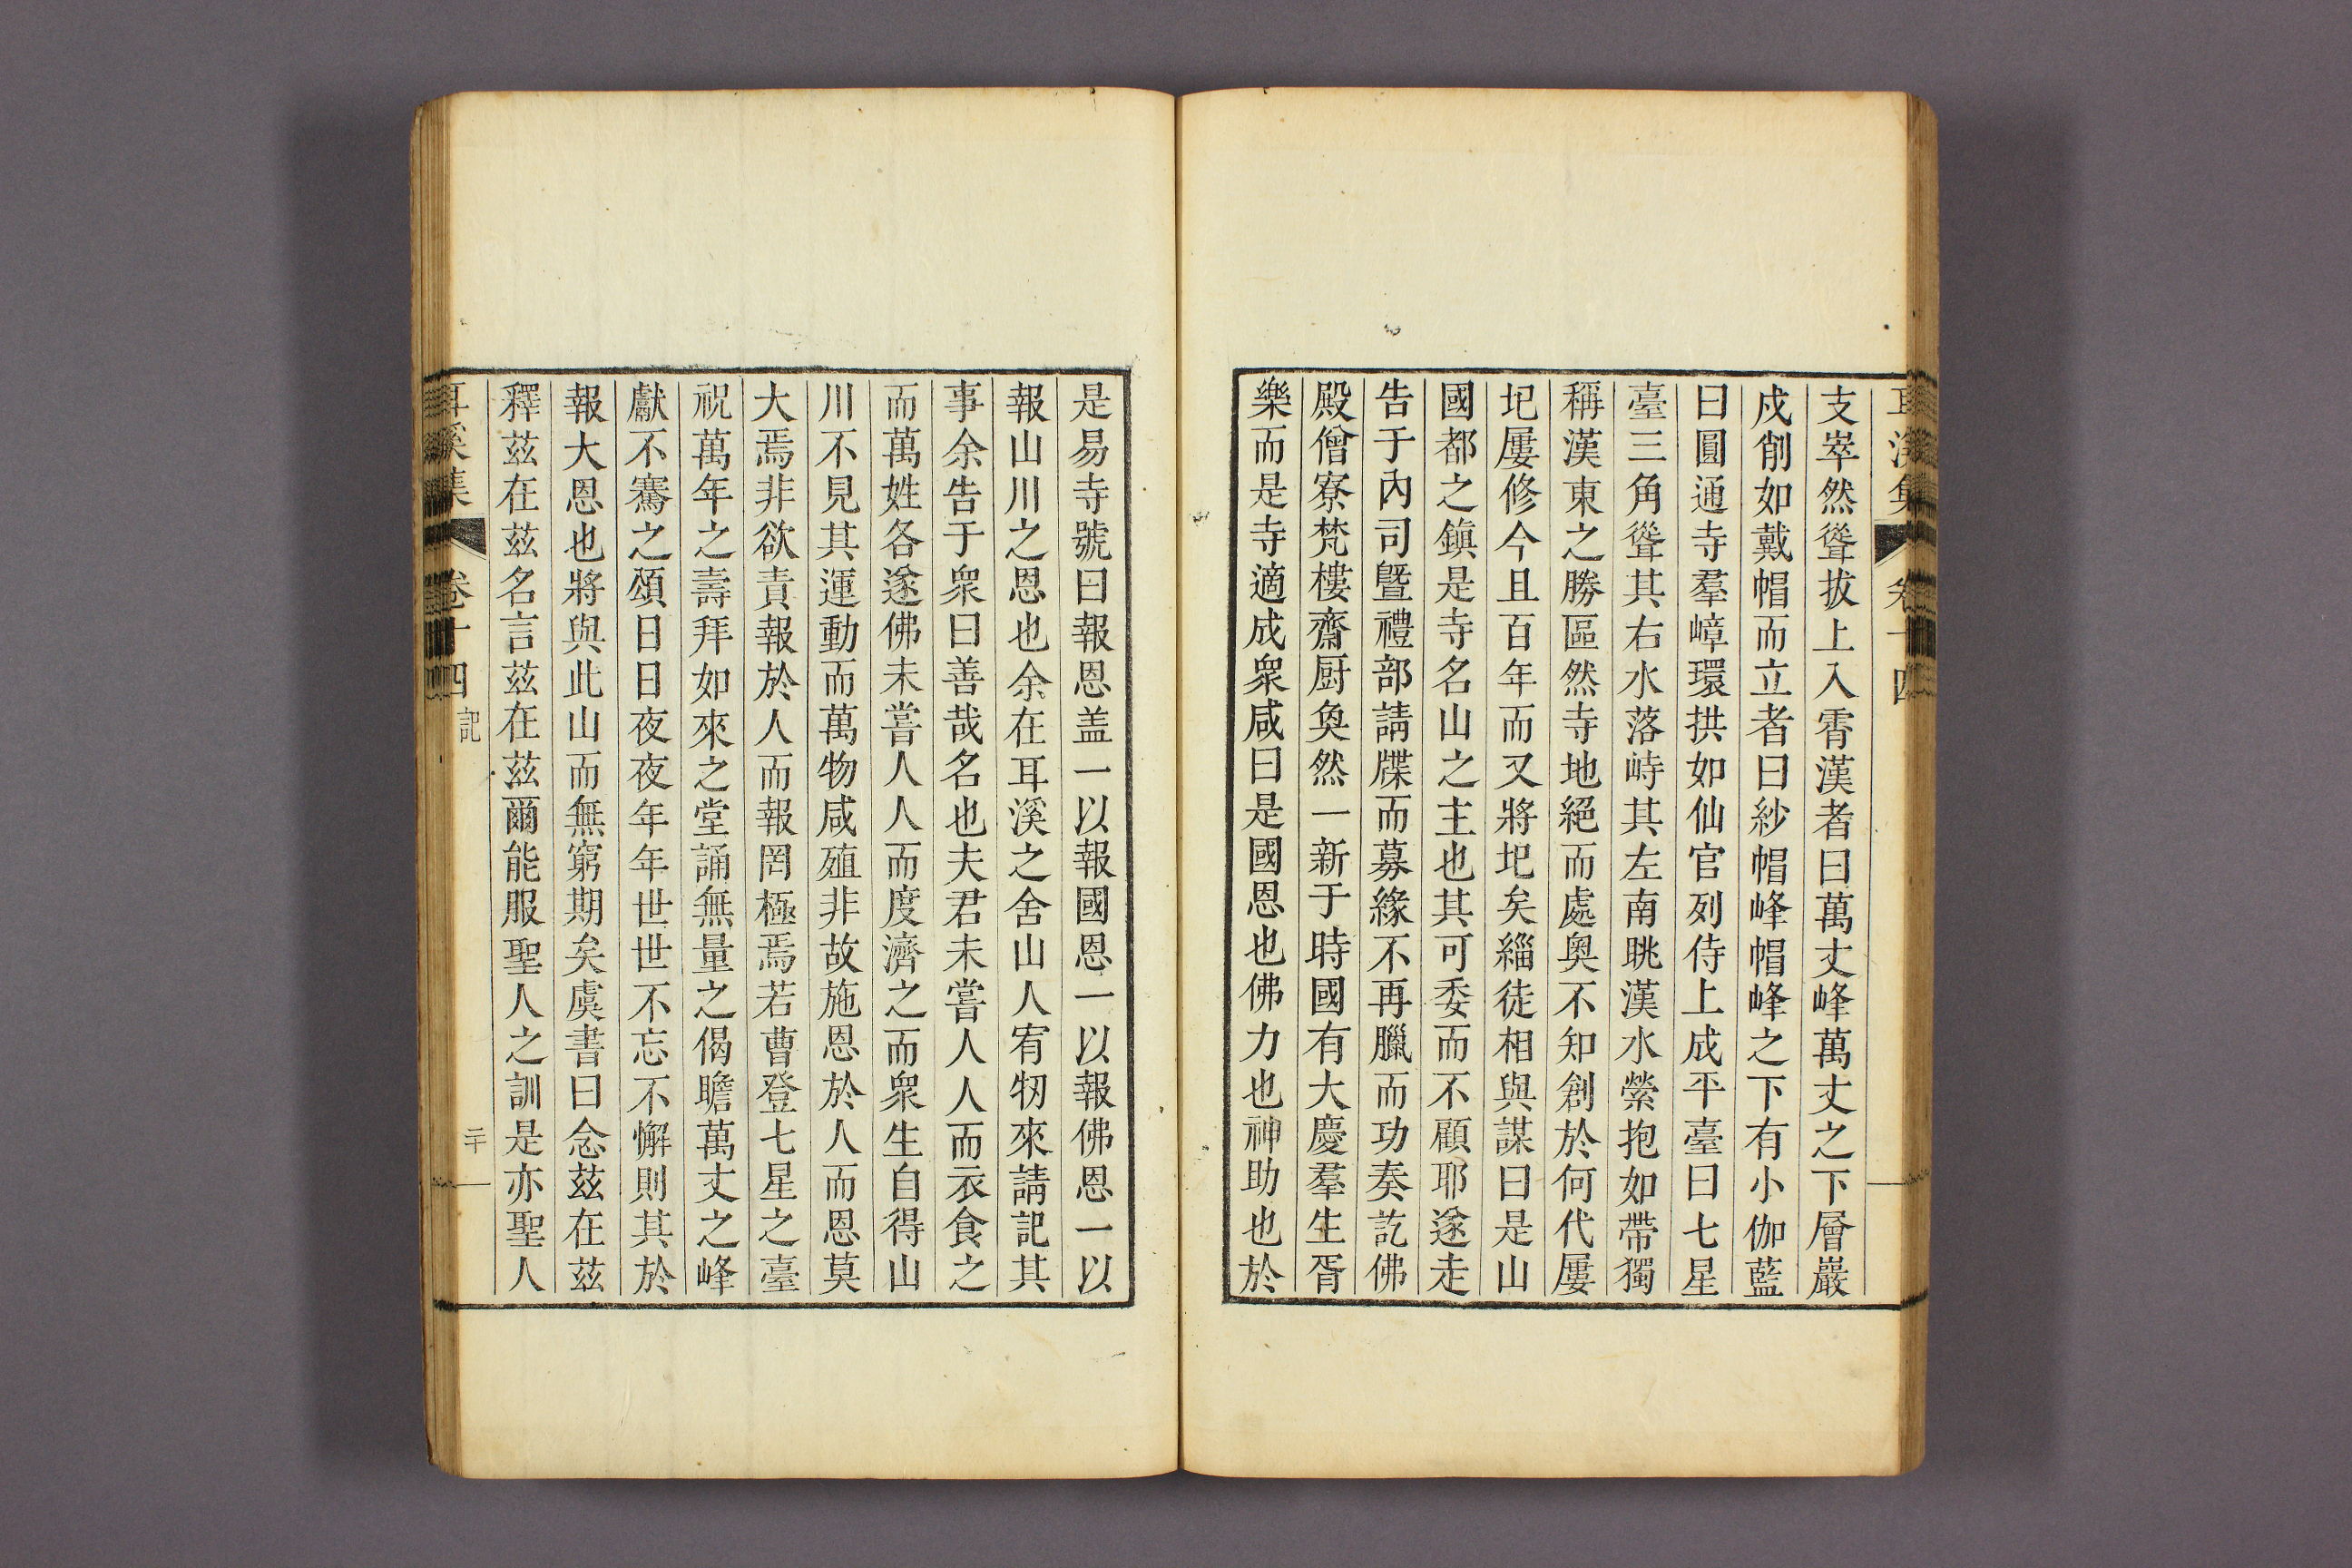 支崒然聳拔上入霄漢者曰萬丈峰萬丈之下層巖
戍削如戴帽而立者曰紗帽峰帽峰之下有小伽藍
曰圓通寺羣嶂環拱如仙官列侍上成平臺曰七星
臺三角聳其右水落峙其左南眺漢水縈抱如帶獨
稱漢東之勝區然寺地絕而處奧不知創於何代屢
圮屢修今且百年而又將圮矣緇徒相與謀曰是山
國都之鎭是寺名山之主也其可委而不顧耶遂走
告于內司曁禮部請牒而募緣不再臘而功奏訖佛
殿僧寮梵樓齋厨奐然一新于時國有大慶羣生胥
樂而是寺適成衆咸曰是國恩也佛力也神助也於
是易寺號曰報恩盖一以報國恩一以報佛恩一以
報山川之恩也余在耳溪之舍山人宥牣來請記其
事余告于衆曰善哉名也夫君未嘗人人而衣食之
而萬姓各遂佛未嘗人人而度濟之而衆生自得山
川不見其運動而萬物咸殖非故施恩於人而恩莫
大焉非欲責報於人而報罔極焉若曹登七星之臺
祝萬年之壽拜如來之堂誦無量之偈瞻萬丈之峰
獻不騫之頌日日夜夜年年世世不忘不懈則其於
報大恩也將與此山而無窮期矣虞書曰念茲在茲
釋茲在茲名言茲在茲爾能服聖人之訓是亦聖人
耳溪集 卷十四 記 二十